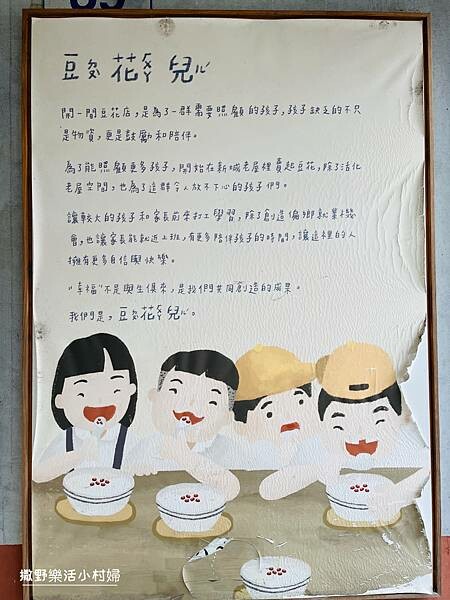 豆ㄉㄡˋ花ㄏㄨㄚ兒ㄦ
開一間豆花店，是為了一群需要照顧的孩子，孩子缺乏的不只
是物資，更是鼓勵和陪伴。
為了能照顧更多孩子，開始在新城老屋裡賣起豆花，除了活化
老屋空間，也為了這群令人放不下心的孩子們。
讓較大的孩子和家長前來打工學習，除了創造偏鄉就業機
會，也讓家長能就近上班，有更多陪伴孩子的時間，讓這裡的人
擁有更多自信與快樂。
"幸福"不是與生俱來，是我們共同創造的成果。
我們是，豆花兒。
撒野樂活小村婦